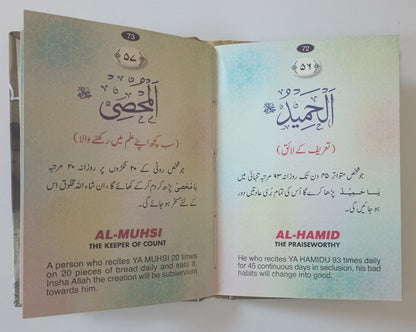 72
۵۶
اَلْحَمِيدُ
(تعریف کے لائق)
جو شخص متواتر ۴۵ دن تک روزانہ ۹۳ مرتبہ تنہائی میں
یَا حَمِیْدُ پڑھا کرے گا اُس کی تمام بُری عادتیں دور
ہو جائے گی۔
AL-HAMID
THE PRAISEWORTHY
He who recites YA HAMIDU 93 times daily
for 45 continuous days in seclusion, his bad
habits will change into good.
73
۵۷
اَلْمُحْصِى
(سب کچھ اپنے علم میں رکھنے والا)
جو شخص روٹی کے ۲۰ ٹکڑوں پر روزانہ ۲۰ مرتبہ
یَا مُحْصِیُ پڑھ کر دم کر کے کھائے گا، ان شاء اللہ مخلوق اس
کے لئے مسخر ہو جائے گی۔
AL-MUHSI
THE KEEPER OF COUNT
A person who recites YA MUHSI 20 times
on 20 pieces of bread daily and eats it.
Insha Allah the creation will be subservient
towards him.